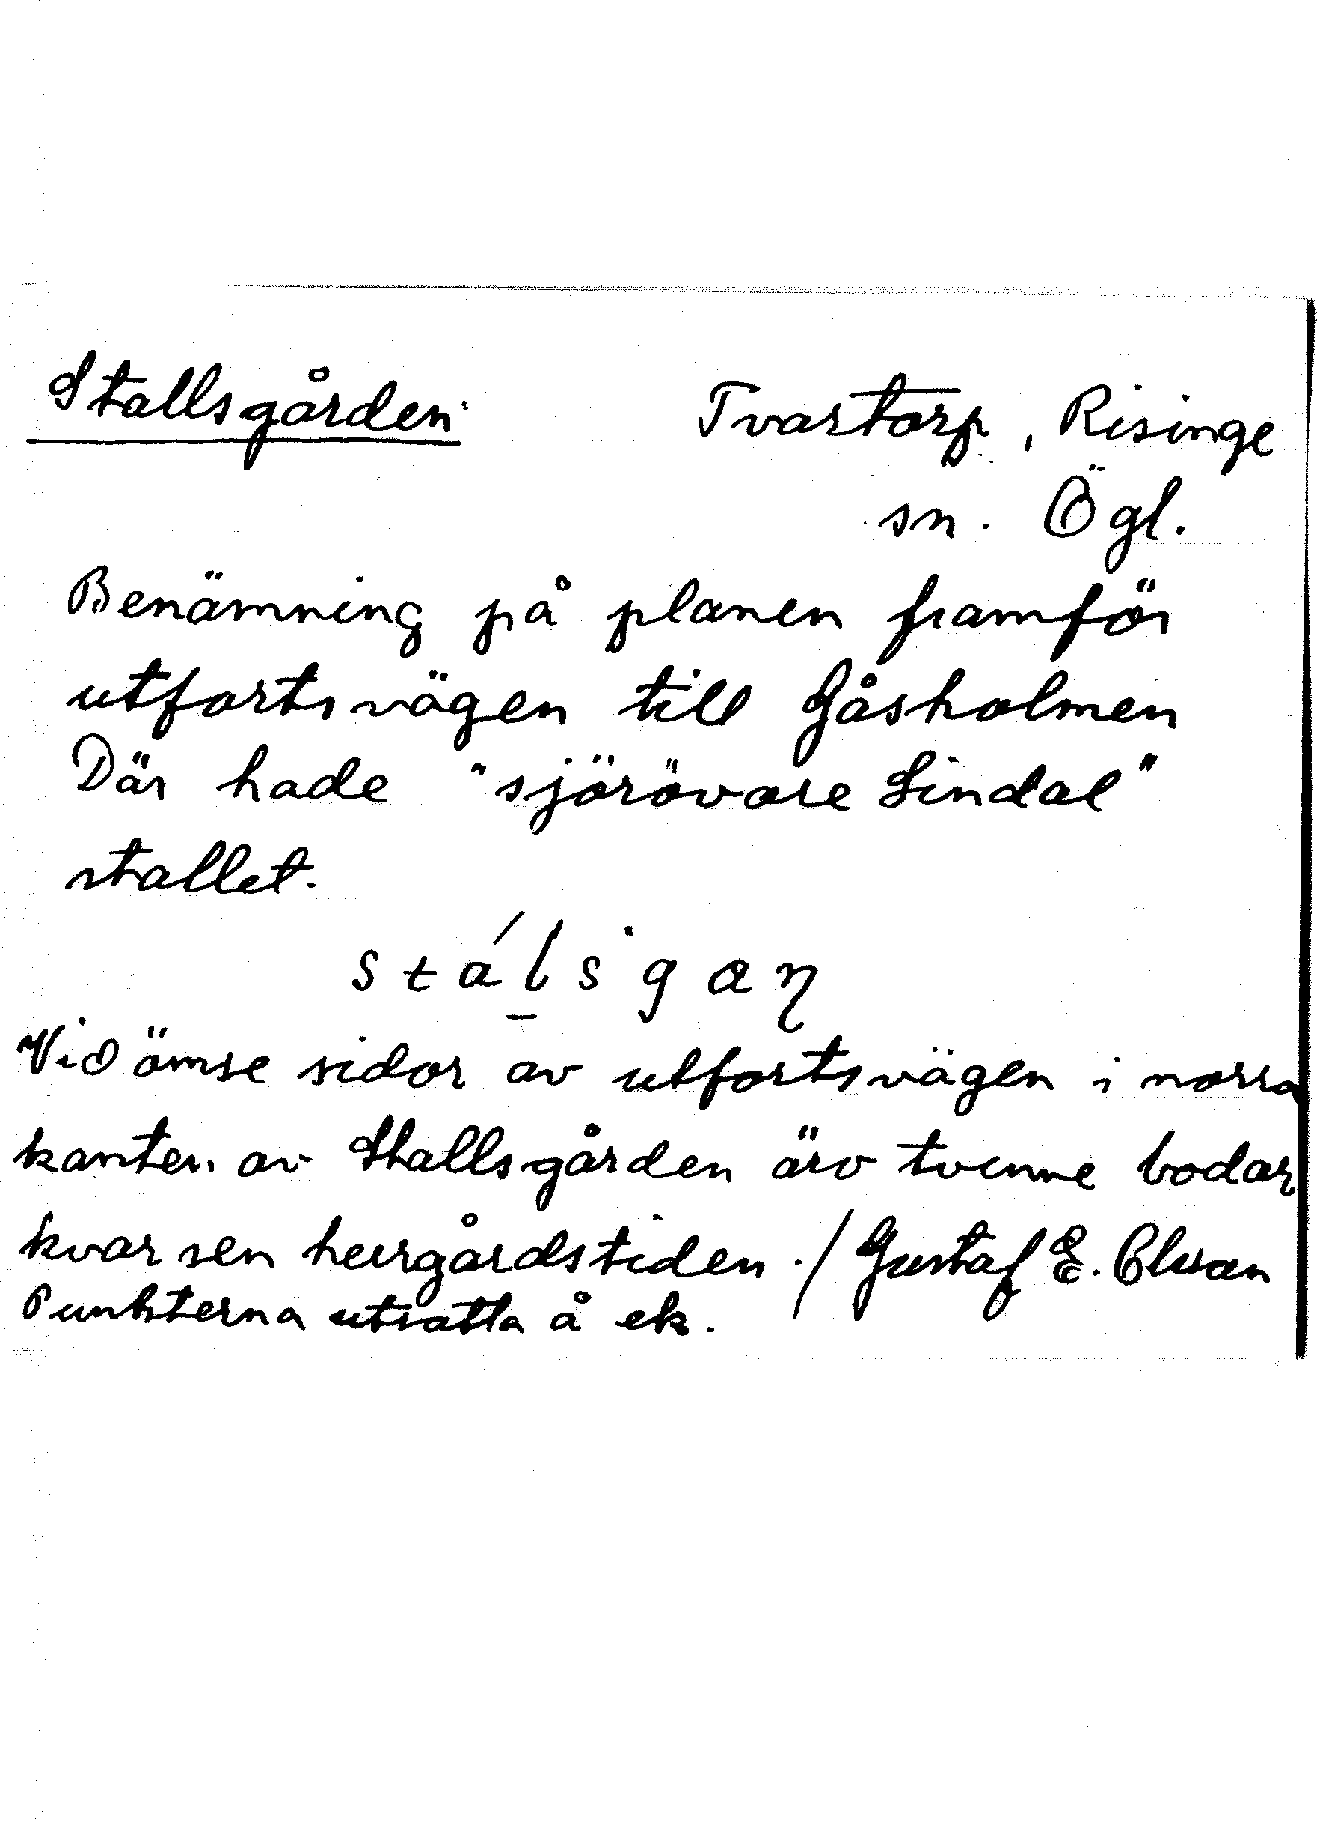 Stallsgården Tvartorp, Risinge
sn. Ögl.
Benämning på planen framför
utfortsvägen till Gåsholmen
Där hade "sjörövare Lindal"
stallet.
Vid ömse sidor av utfortsvägen i norra
kanten av Stallsgården äro tvenne bodar
kvar sen herrgårdstiden./ Gustaf E.
Punkterna utsatta å ek.